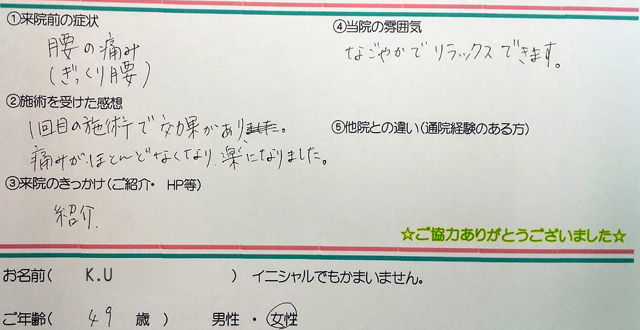 ①来院前の症状
腰の痛み
(ぎっくり腰)
②施術を受けた感想
1回目の施術で効果があり。
痛みがほとんどなくなり、楽になりました。
③来院のきっかけ(ご紹介・ HP等)
紹介
④当院の雰囲気
なごやかでリラックスできます。
⑤他院との違い(通院経験のある方)
☆ご協力ありがとうございました☆
お名前( K.U ) イニシャルでもかまいません。
ご年齢( 49 歳 ) 男性 ・ 女性